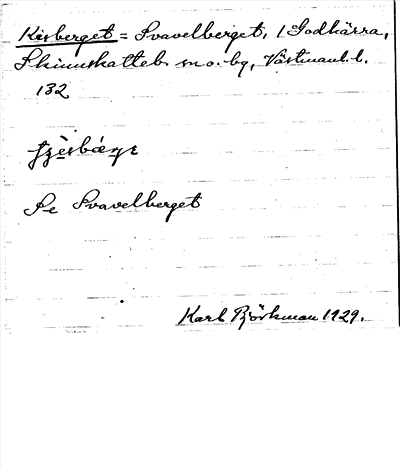 Kisberget = Svavelberget, i Godkärra,
Skinnskatteb. sn o. bg, Västmanl. l.
132
Se Svavelberget
Karl Björkman 1929.